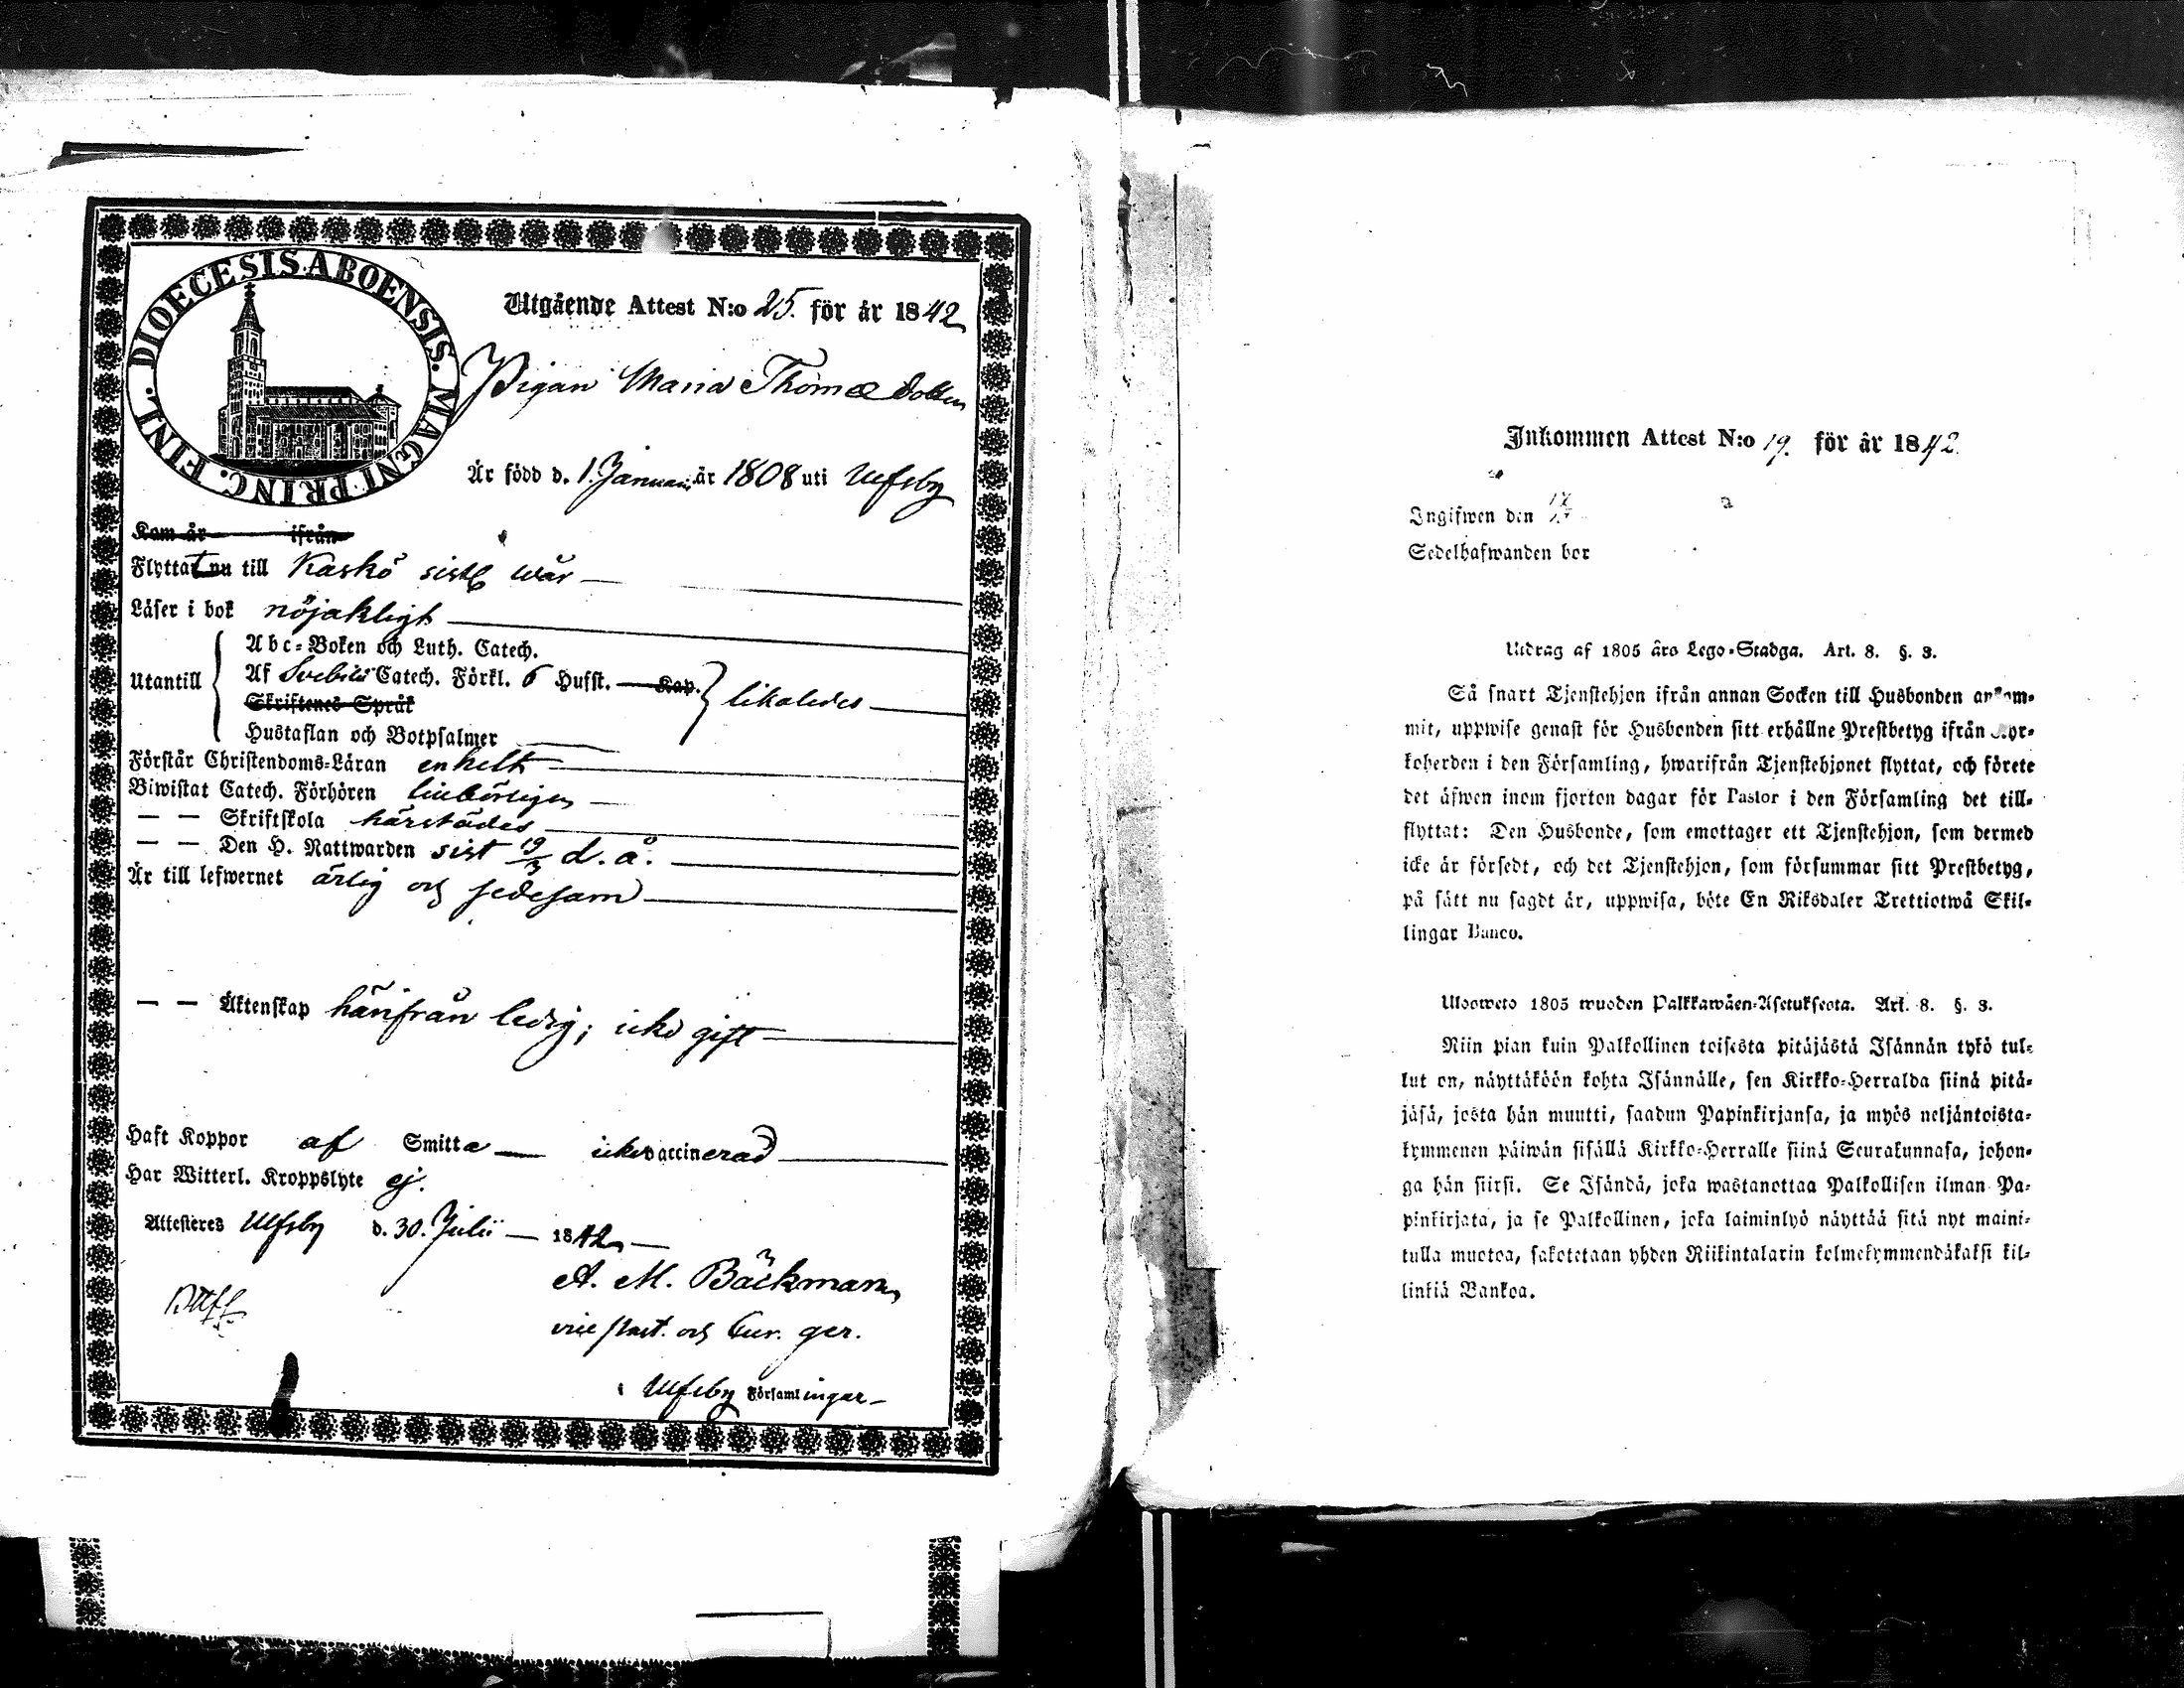 DIOECESIS ABOENSIS. MAGNI PRINC. FINL.
Utgående Attest N:o 25. för år 1842
Pigan Maria Thomæ dotter
Är född d. 1. Januarii år 1808 uti Ulfsby
Kom år ifrån
Flyttat nu till Kaskö sistl. wår
Läser i bok nöjakligt
Abc-Boken och Luth. Catech.
Utantill Af Svebilii Catech. Förkl. 6 Hufst. Kap. likaledes
Skriftenes Språk
Hustaflan och Botpsalmer
Förstår Christendoms-Läran enkelt
Biwistat Catech. Förhören
— — Skriftskola härstädes
— — Den H. Nattwarden sist 19/3 d. å.
Är till lefwernet ärlig och sedesam
— — Äktenskap härifrån ledig; icke gift
Haft Koppor af Smitta icke vaccinerad
Har Witterl. Kroppslyte ej.
Attesteres Ulfsby d. 30. Julii 1842
A. M. Bäckman
vice past. och Cur. ger.
i Ulfsby Församlingar
Inkommen Attest N:o 19. för år 1842.
Ingifwen den
Sedelhafwanden bor
Utdrag af 1805 års Lego-Stadga. Art. 8. §. 3.
Så snart Tjenstehjon ifrån annan Socken till Husbonden ankom-
mit, uppwise genast för Husbonden sitt erhållne Prestbetyg ifrån Kyr-
koherden i den Församling, hwarifrån Tjenstehjonet flyttat, och förete
det äfwen inom fjorton dagar för Pastor i den Församling det till-
flyttat: Den Husbonde, som emottager ett Tjenstehjon, som dermed
icke är försedt, och det Tjenstehjon, som försummar sitt Prestbetyg,
på sätt nu sagdt är, uppwisa, böte En Riksdaler Trettiotwå Skil-
lingar Banco.
Ulosweto 1805 wuoden Palkkawäen-Asetuksesta. Art. 8. §. 3.
Niin pian kuin Palkollinen toisesta pitäjästä Isännän tykö tul-
lut on, näyttäköön kohta Isännälle, sen Kirkko-Herralda siinä pitä-
jäsä, josta hän muutti, saadun Papinkirjansa, ja myös neljäntoista-
kymmenen päiwän sisällä Kirkko-Herralle siinä Seurakunnasa, johon-
ga hän siirsi. Se Isändä, joka wastanottaa Palkollisen ilman Pa-
pinkirjata, ja se Palkollinen, joka laiminlyö näyttää sitä nyt maini-
tulla muotoa, sakotetaan yhden Riikintalarin kolmekymmendäkaksi kil-
linkiä Bankoa.